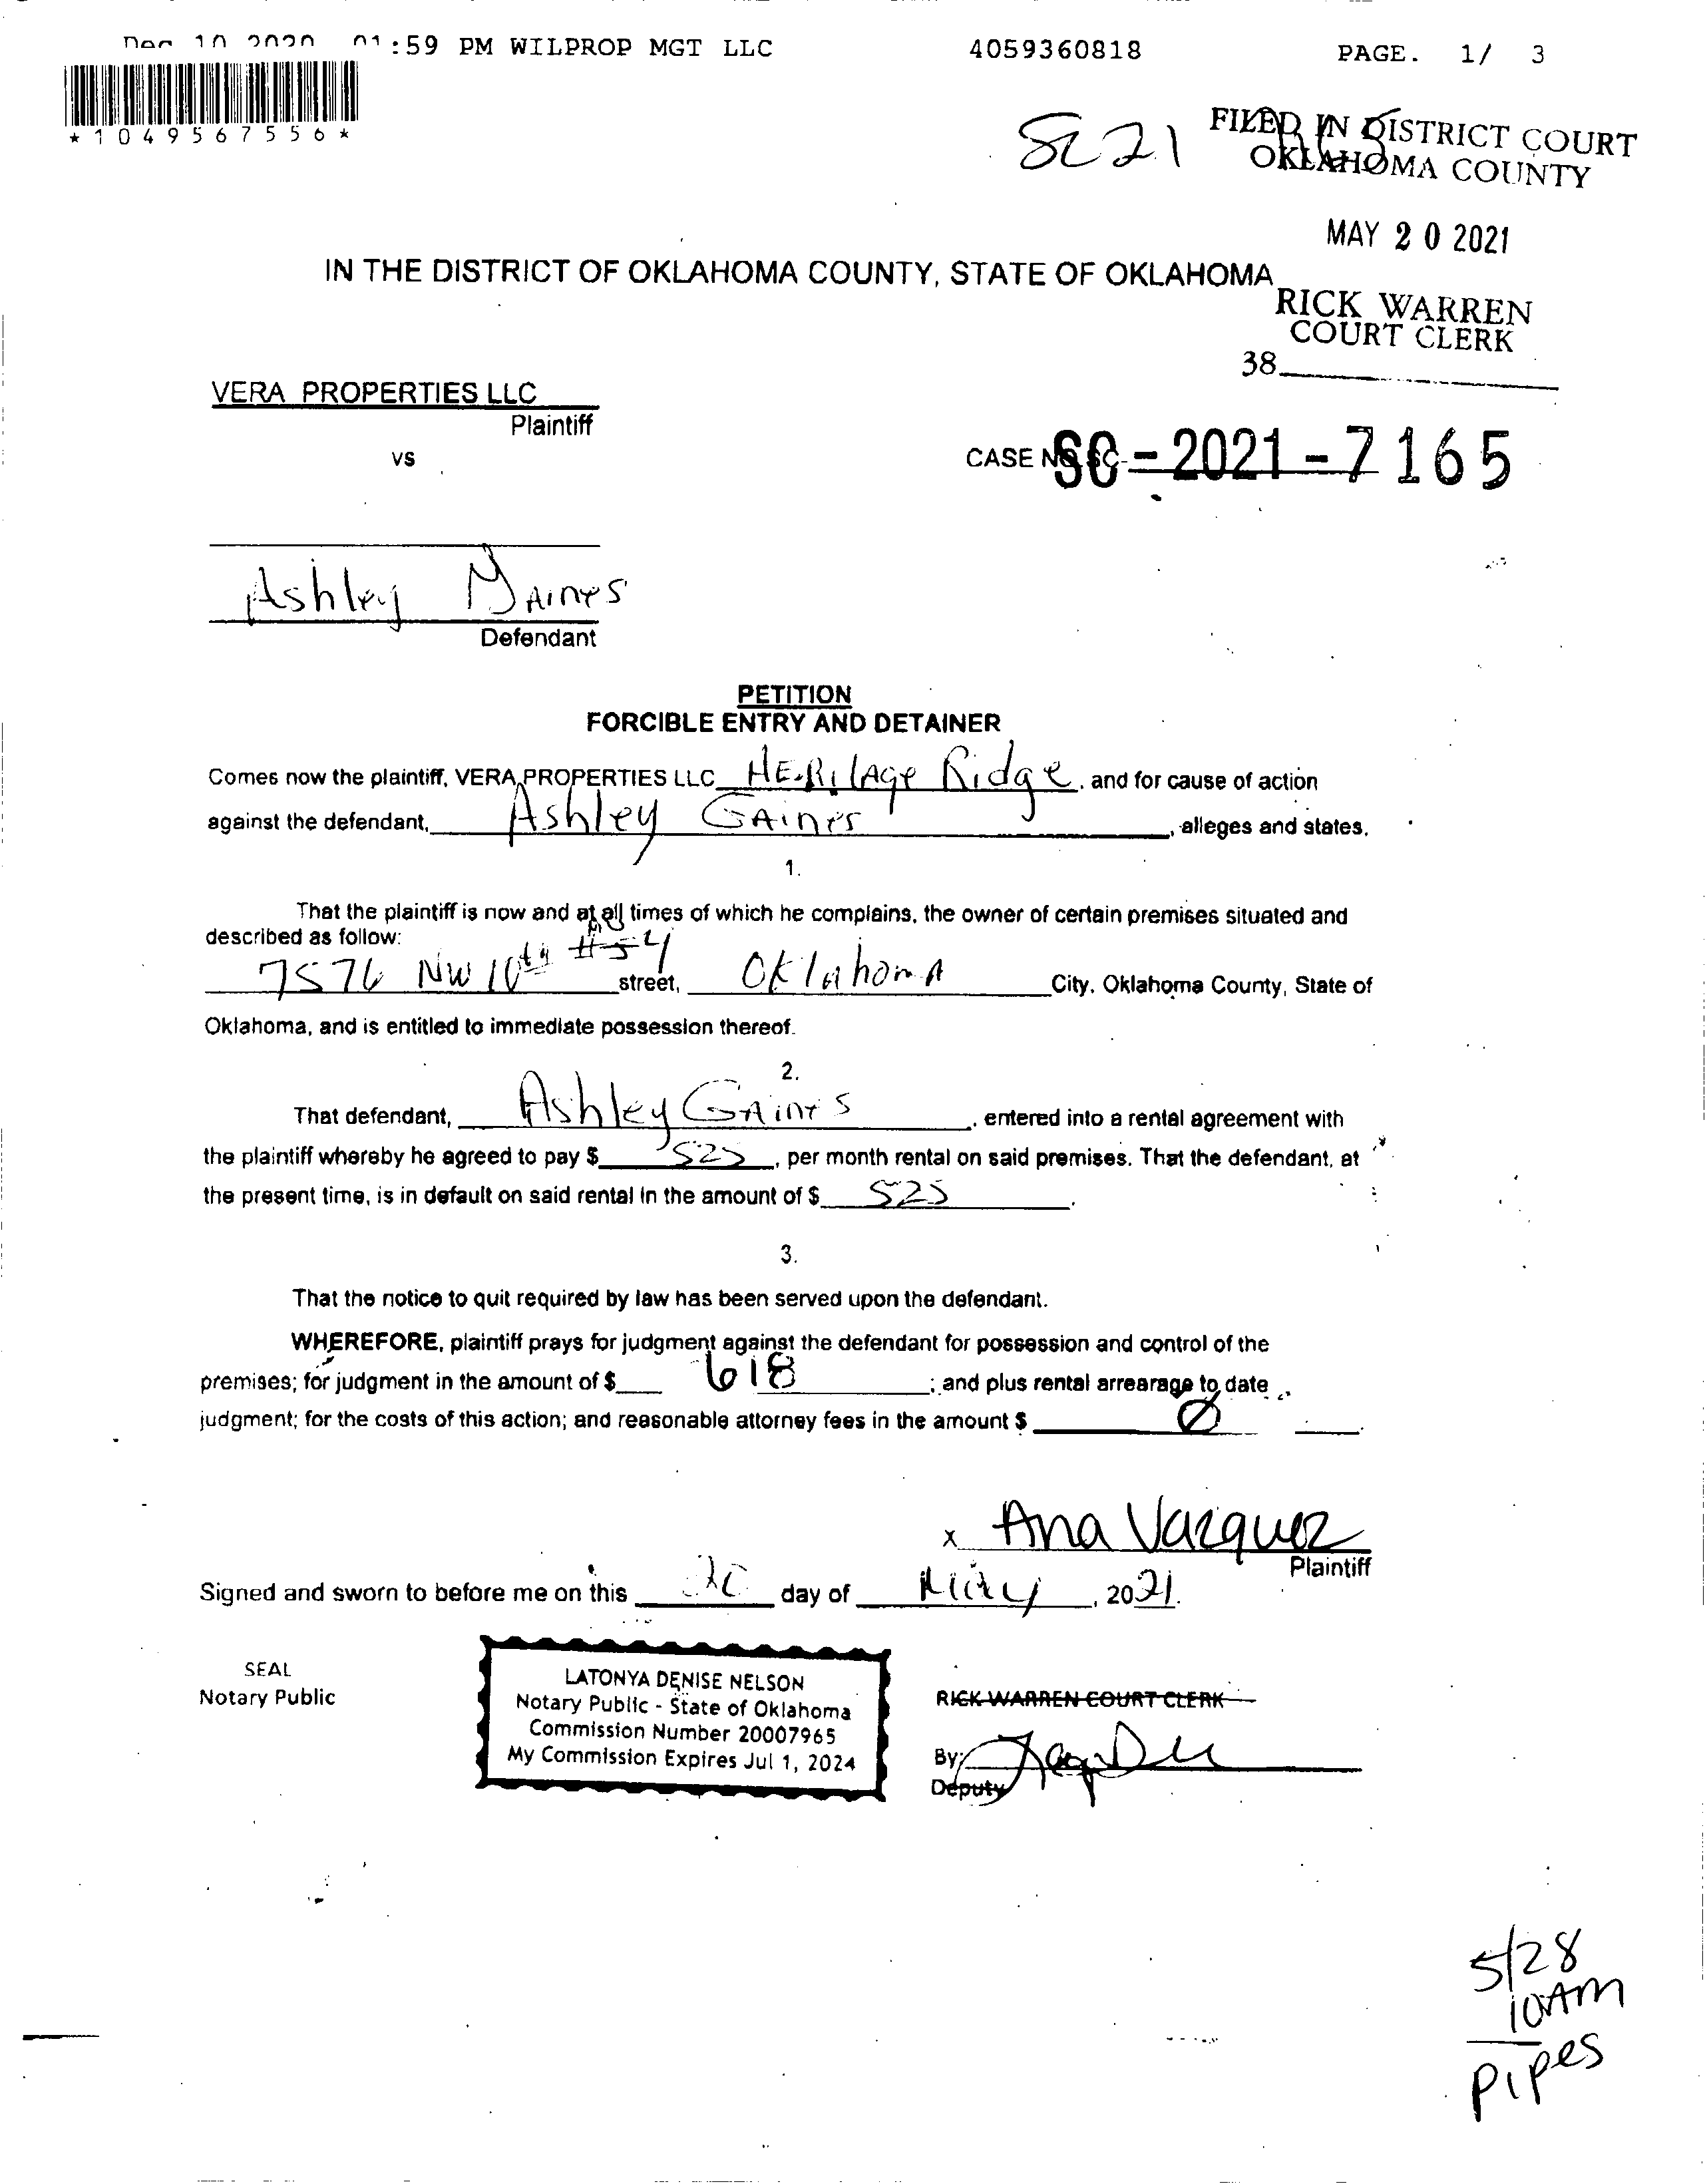 Dec 10 2020 01:59 PM WILPROP MGT LLC 4059360818 PAGE. 1/ 3
*1049567556*
SC 21
FILED IN DISTRICT COURT
OKLAHOMA COUNTY
MAY 20 2021
IN THE DISTRICT OF OKLAHOMA COUNTY, STATE OF OKLAHOMA
RICK WARREN
COURT CLERK
38
VERA PROPERTIES LLC
Plaintiff
vs
CASE NO SC-
SC-2021-7165
Ashley Gaines
Defendant
PETITION
FORCIBLE ENTRY AND DETAINER
Comes now the plaintiff, VERA PROPERTIES LLC HERilAge Ridge, and for cause of action
against the defendant, Ashley GAines, alleges and states.
1.
That the plaintiff is now and at all times of which he complains, the owner of certain premises situated and
described as follow:
7576 NW 10th #54 street, Oklahoma City, Oklahoma County, State of
Oklahoma, and is entitled to immediate possession thereof.
2.
That defendant, Ashley GAines, entered into a rental agreement with
the plaintiff whereby he agreed to pay $ 525, per month rental on said premises. That the defendant, at
the present time, is in default on said rental in the amount of $ 525.
3.
That the notice to quit required by law has been served upon the defendant.
WHEREFORE, plaintiff prays for judgment against the defendant for possession and control of the
premises; for judgment in the amount of $ 618; and plus rental arrearage to date
judgment; for the costs of this action; and reasonable attorney fees in the amount $ Ø
x Ana Vazquez
Plaintiff
Signed and sworn to before me on this 20 day of May, 2021.
SEAL
Notary Public
LATONYA DENISE NELSON
Notary Public - State of Oklahoma
Commission Number 20007965
My Commission Expires Jul 1, 2024
RICK WARREN COURT CLERK
By:
Deputy
5/28
10AM
Pipes